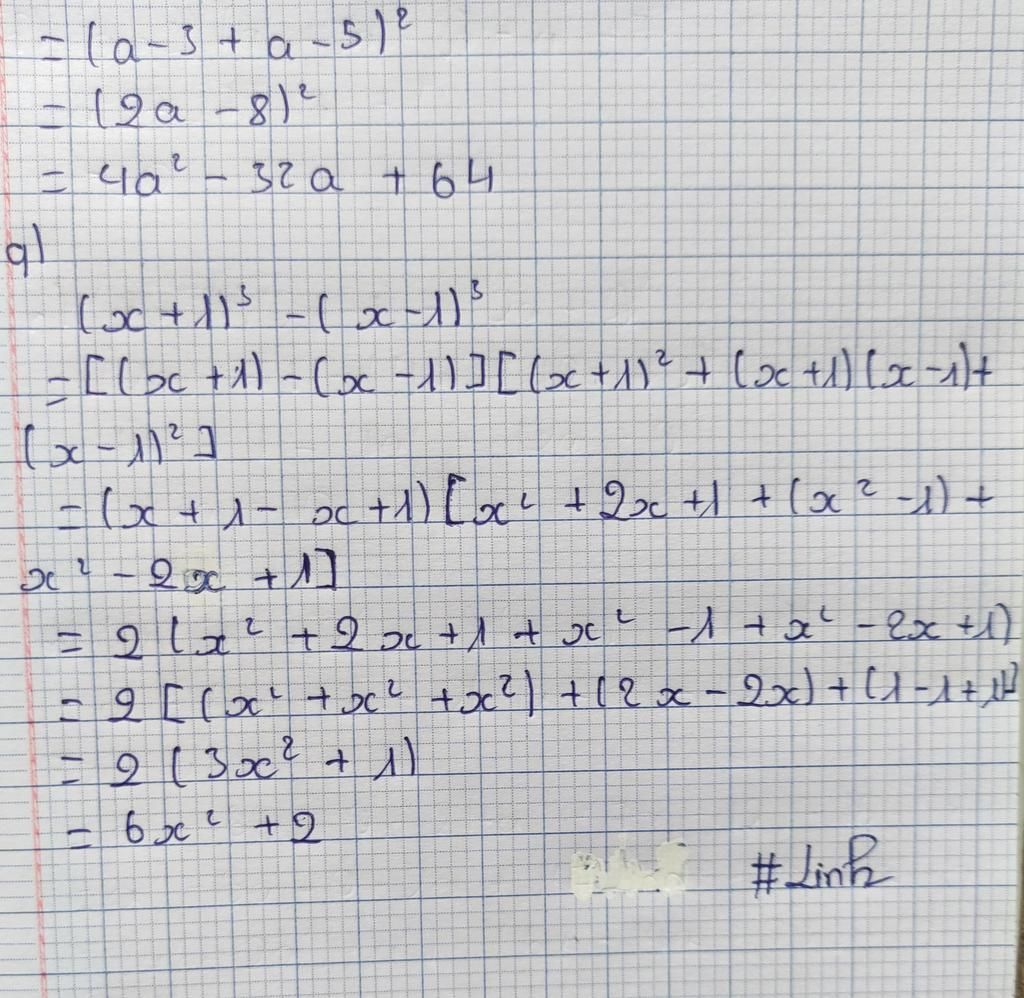 = (a - 3 + a - 5)²
= (2a - 8)²
= 4a² - 32a + 64
q)
(x + 1)³ - (x - 1)³
= [(x + 1) - (x - 1)][(x + 1)² + (x + 1)(x - 1) +
(x - 1)²]
= (x + 1 - x + 1)[x² + 2x + 1 + (x² - 1) +
x² - 2x + 1]
= 2 (x² + 2x + 1 + x² - 1 + x² - 2x + 1)
= 2 [(x² + x² + x²) + (2x - 2x) + (1 - 1 + 1)]
= 2 (3x² + 1)
= 6x² + 2
#Linh